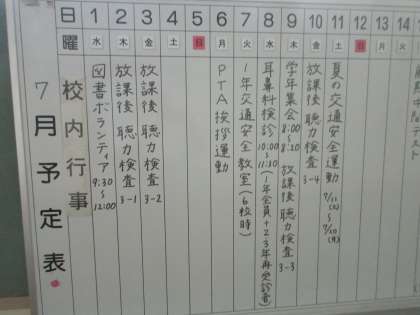 7月予定表
日 1 2 3 4 5 6 7 8 9 10 11 12 13 14
曜 水 木 金 土 日 月 火 水 木 金 土 日 月 火
校内行事
図書ボランティア 9:30~12:00
放課後 聴力検査 3-1
放課後 聴力検査 3-2
PTA挨拶運動
1年交通安全教室(6校時)
耳鼻科検診 10:00~11:30(1年全員+2・3年再受診者)
学年集会 8:00~8:20 放課後 聴力検査 3-3
放課後 聴力検査 3-4
夏の交通安全運動 7/11(土)~7/20(月)